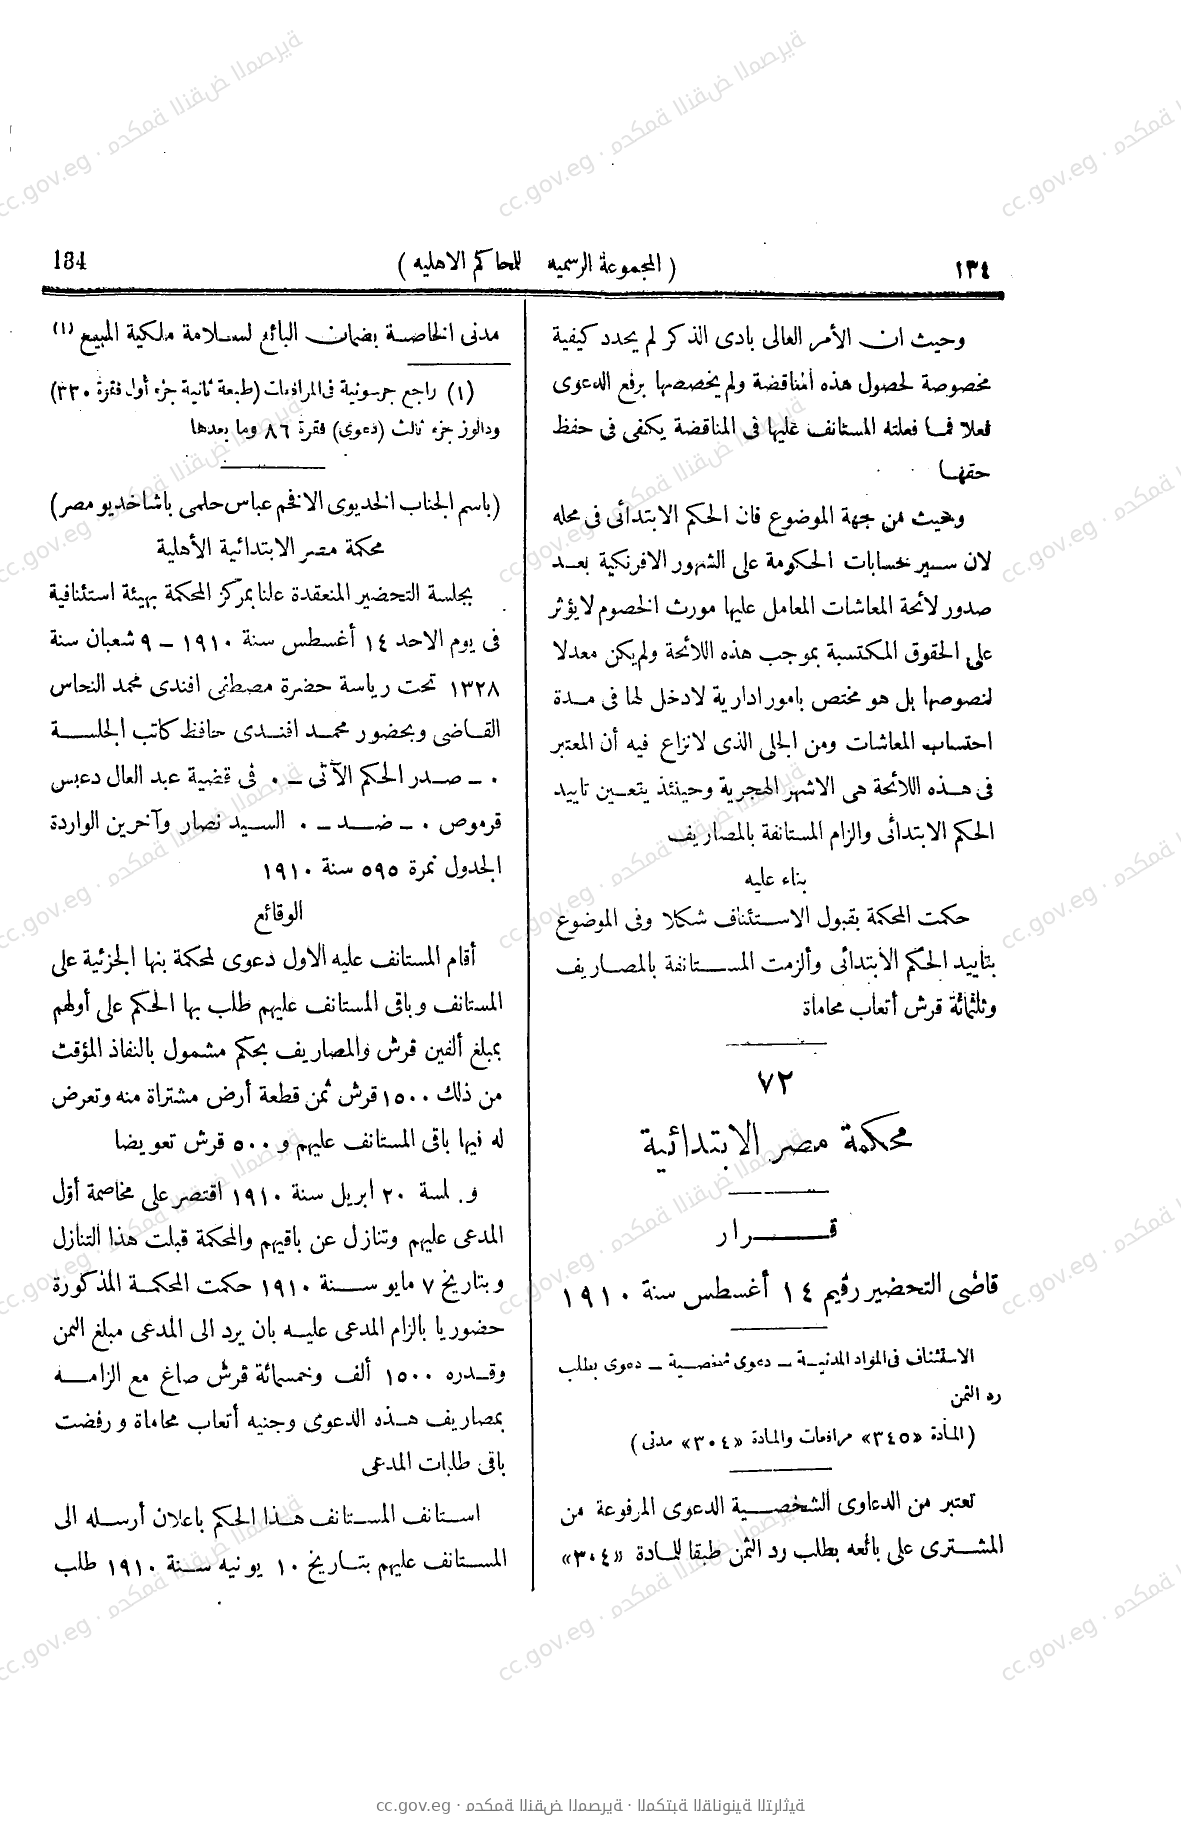 ١٣٤ ( المجموعة الرسمية للمحاكم الاهلية ) 134
وحيث ان الأمر العالى بادى الذكر لم يحدد كيفية
مخصوصة لحصول هذه المناقضة ولم يخصصها برفع الدعوى
فعلا فما فعلته المستانف عليها فى المناقضة يكفى فى حفظ
حقها
وحيث من جهة الموضوع فان الحكم الابتدائى فى محله
لان سير حسابات الحكومة على الشهور الافرنكية بعد
صدور لائحة المعاشات المعامل عليها مورث الخصوم لايؤثر
على الحقوق المكتسبة بموجب هذه اللائحة ولم يكن معدلا
لنصوصها بل هو مختص بامور ادارية لادخل لها فى مدة
احتساب المعاشات ومن الجلى الذى لانزاع فيه أن المعتبر
فى هذه اللائحة هى الاشهر الهجرية وحينئذ يتعين تاييد
الحكم الابتدائى والزام المستانفة بالمصاريف
بناء عليه
حكمت المحكمة بقبول الاستئناف شكلا وفى الموضوع
بتاييد الحكم الابتدائى وألزمت المستانفة بالمصاريف
وثلثمائة قرش أتعاب محاماة
٧٢
محكمة مصر الابتدائية
قرار
قاضى التحضير رقيم ١٤ أغسطس سنة ١٩١٠
الاستئناف فى المواد المدنية ــ دعوى شخصية ــ دعوى بطلب
رد الثمن
(المادة «٣٤٥» مرافعات والمادة «٣٠٤» مدنى)
تعتبر من الدعاوى الشخصية الدعوى المرفوعة من
المشترى على بائعه بطلب رد الثمن طبقا للمادة «٣٠٤»
مدنى الخاصة بضمان البائع لسلامة ملكية المبيع (١)
(١) راجع جرسونية فى المرافعات (طبعة ثانية جزء أول فقرة ٣٣٠)
ودالوز جزء ثالث (دعوى) فقرة ٨٦ وما بعدها
(باسم الجناب الخديوى الافخم عباس حلمى باشا خديو مصر)
محكمة مصر الابتدائية الأهلية
بجلسة التحضير المنعقدة علنا بمركز المحكمة بهيئة استئنافية
فى يوم الاحد ١٤ أغسطس سنة ١٩١٠ ــ ٩ شعبان سنة
١٣٢٨ تحت رياسة حضرة مصطفى افندى محمد النحاس
القاضى وبحضور محمد افندى حافظ كاتب الجلسة
٠ ــ صدر الحكم الآتى ــ ٠ فى قضية عبد العال دعبس
قرموص ٠ ــ ضد ــ ٠ السيد نصار وآخرين الواردة
الجدول نمرة ٥٩٥ سنة ١٩١٠
الوقائع
أقام المستانف عليه الاول دعوى لمحكمة بنها الجزئية على
المستانف وباقى المستانف عليهم طلب بها الحكم على أولهم
بمبلغ ألفين قرش والمصاريف بحكم مشمول بالنفاذ المؤقت
من ذلك ١٥٠٠ قرش ثمن قطعة أرض مشتراة منه وتعرض
له فيها باقى المستانف عليهم و ٥٠٠ قرش تعويضا
و. لسة ٢٠ ابريل سنة ١٩١٠ اقتصر على مخاصمة أول
المدعى عليهم وتنازل عن باقيهم والمحكمة قبلت هذا التنازل
وبتاريخ ٧ مايو سنة ١٩١٠ حكمت المحكمة المذكورة
حضوريا بالزام المدعى عليه بان يرد الى المدعى مبلغ الثمن
وقدره ١٥٠٠ ألف وخمسمائة قرش صاغ مع الزامه
بمصاريف هذه الدعوى وجنيه أتعاب محاماة ورفضت
باقى طلبات المدعى
استانف المستانف هذا الحكم باعلان أرسله الى
المستانف عليهم بتاريخ ١٠ يونيه سنة ١٩١٠ طلب
cc.gov.eg · محكمة النقض المصرية · المكتبة القانونية التراثية